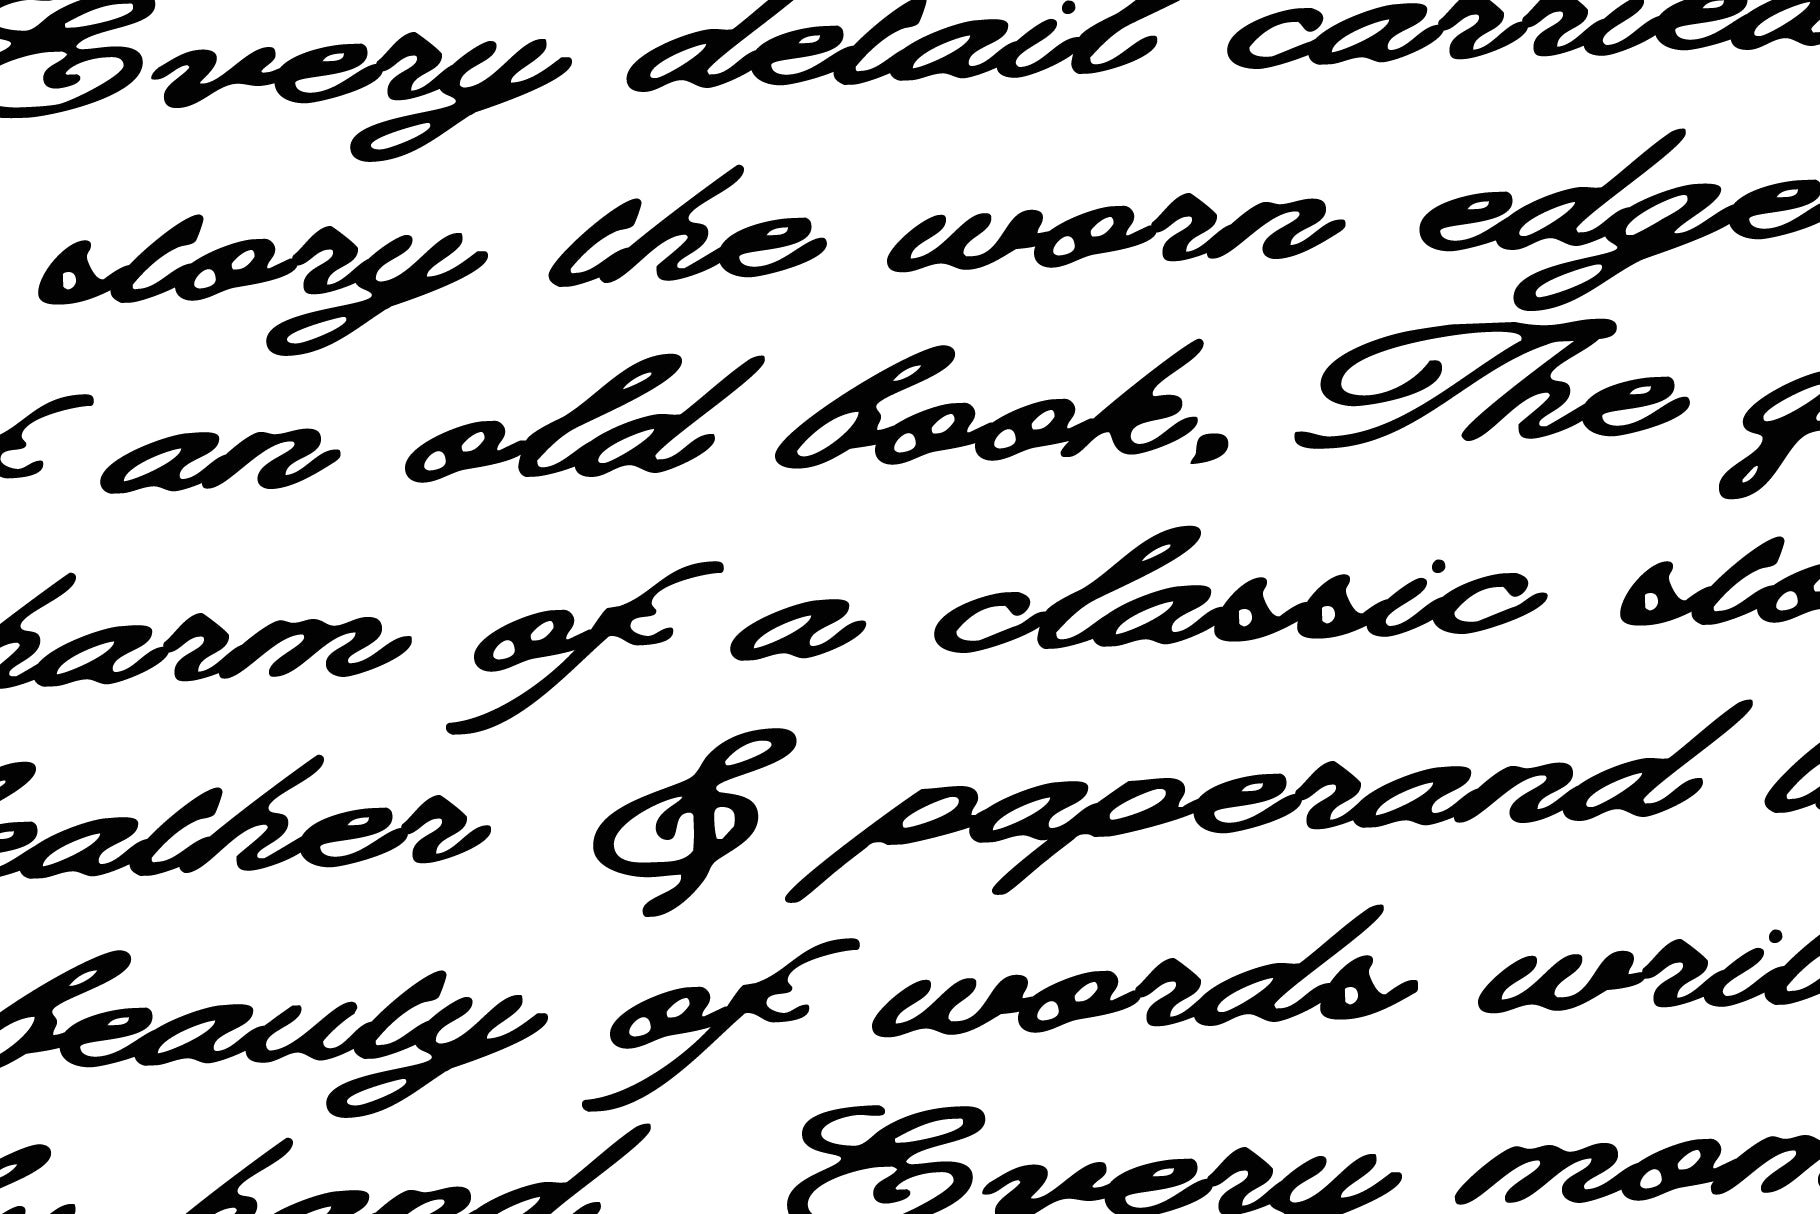 Every detail carried
story the worn edge
an old book. The
harm of a classic sto
eather & paperand
beauty of words writ
by hand Every mom